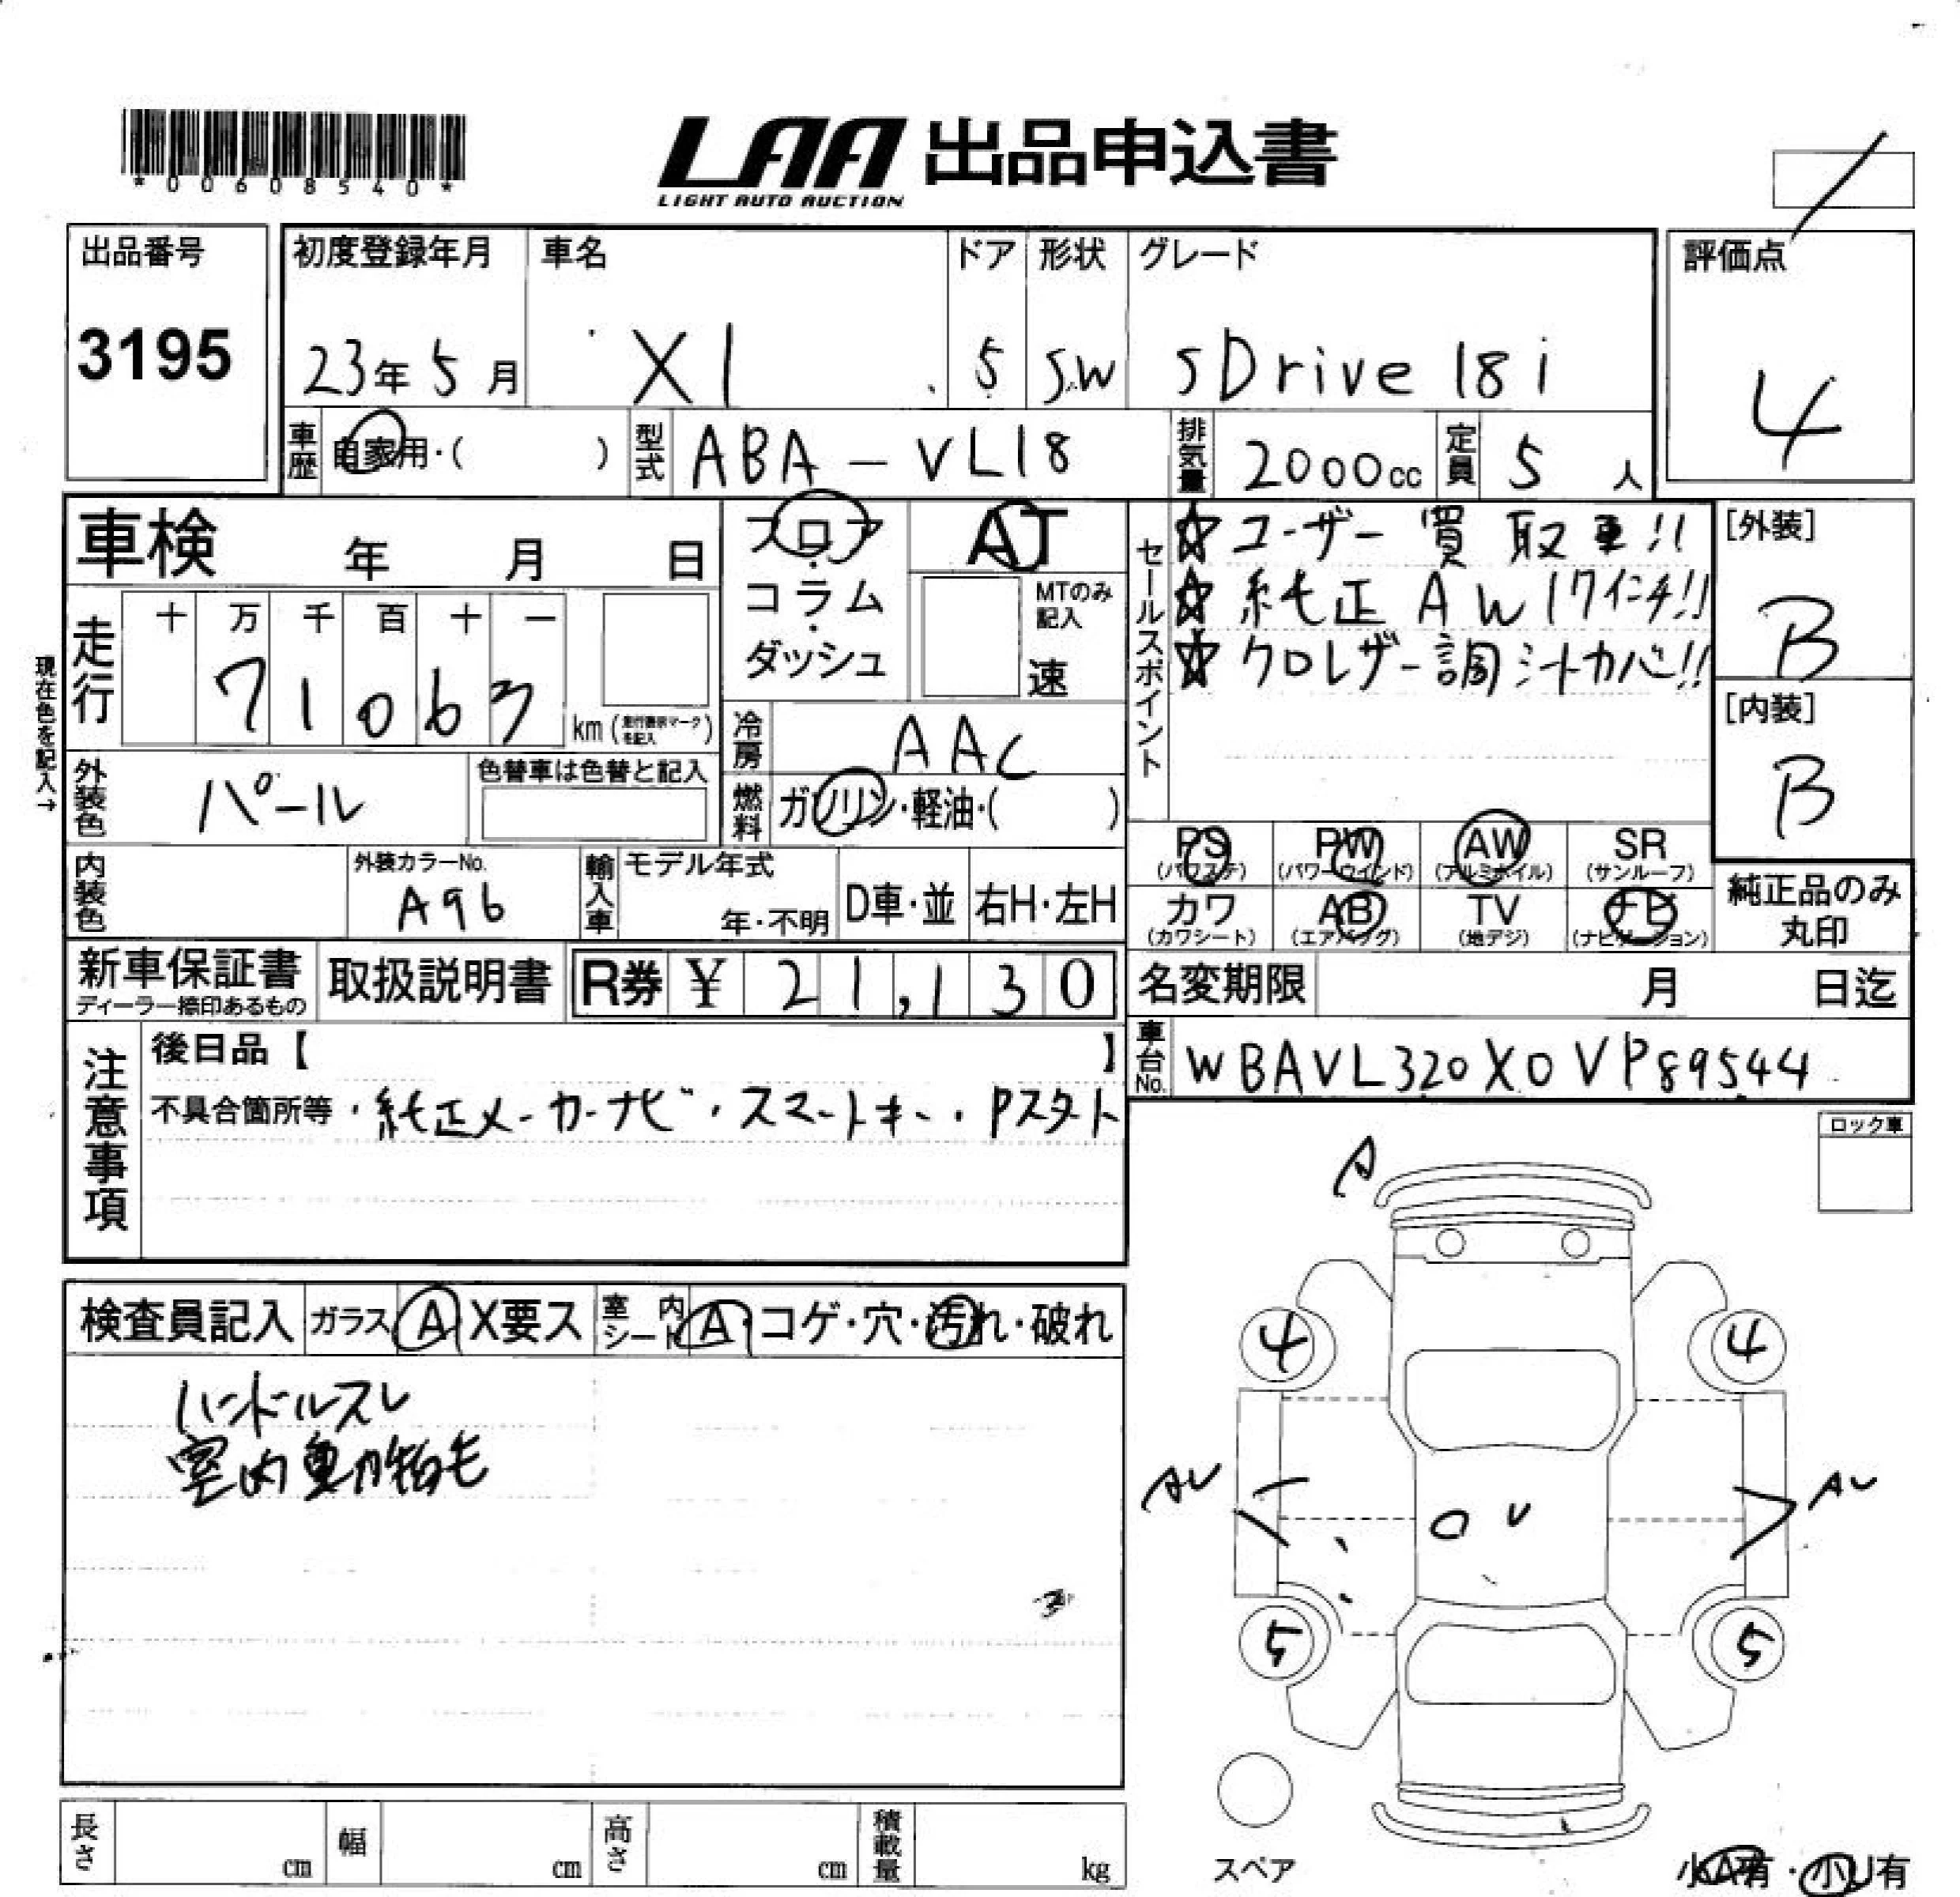 *00608540*
LAA 出品申込書
LIGHT AUTO AUCTION
出品番号 初度登録年月 車名 ドア 形状 グレード 評価点
3195 23年5月 X1 5 S.W sDrive 18i 4
車歴 自家用・( ) 型式 ABA-VL18 排気量 2000cc 定員 5人
車検 年 月 日 フロア・コラム・ダッシュ AT
MTのみ記入 速
セールスポイント
☆ユーザー買取車!!
☆純正AW17インチ!!
☆クロレザー調シートカバー!!
[外装] B
[内装] B
現在色を記入→
走行 十 万 千 百 十 一
71063 km (走行表示マークを記入)
冷房 AAC
外装色 パール 色替車は色替と記入
燃料 ガソリン・軽油・( )
PS (パワステ) PW (パワーウインド) AW (アルミホイル) SR (サンルーフ)
カワ (カワシート) AB (エアバッグ) TV (地デジ) ナビ (ナビゲーション)
純正品のみ丸印
内装色 外装カラーNo. A96 輸入車 モデル年式 年・不明 D車・並 右H・左H
新車保証書 ディーラー捺印あるもの 取扱説明書 R券 ¥ 21,130
名変期限 月 日迄
車台No. WBAVL320X0VP89544
注意事項
後日品【 】
不具合箇所等・純正メーカーナビ・スマートキー・Pスタート
ロック車
検査員記入 ガラス A X要ス 室内シート A・コゲ・穴・汚れ・破れ
ハンドルスレ
室内動物毛
A
4 4
AU AU
U
5 5
スペア
小A有・小U有
長さ cm 幅 cm 高さ cm 積載量 kg